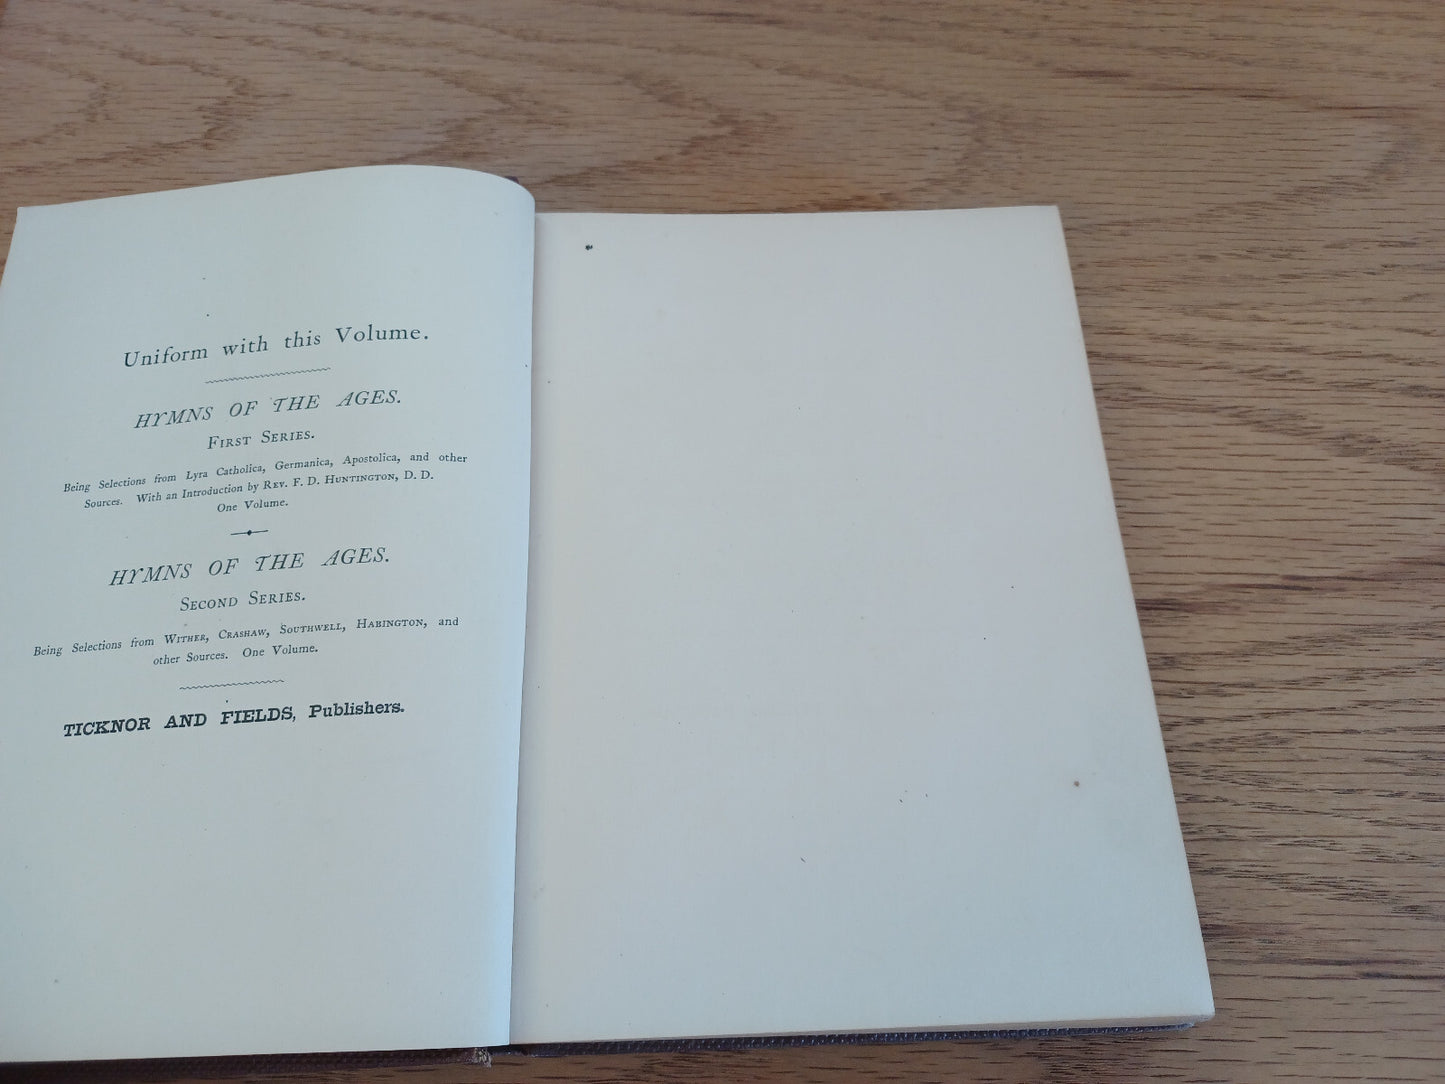 Uniform with this Volume.
HYMNS OF THE AGES.
FIRST SERIES.
Being Selections from Lyra Catholica, Germanica, Apostolica, and other
Sources. With an Introduction by REV. F. D. HUNTINGTON, D. D.
One Volume.
HYMNS OF THE AGES.
SECOND SERIES.
Being Selections from WITHER, CRASHAW, SOUTHWELL, HABINGTON, and
other Sources. One Volume.
TICKNOR AND FIELDS, Publishers.